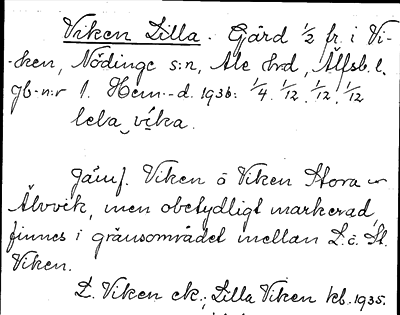 Viken Lilla. Gård 1/2 fr. i Vi-
-ken, Nödinge s:n, Ale hrd, Älfsb. l.
Jb-n:r 1. Hem.-d. 1936: 1/4. 1/12. 1/12. 1/12
lela vika.
Jämf. Viken o Viken Stora
Älvvik, men obetydligt markerad,
finnes i gränsområdet mellan L. o. St.
Viken.
L. Viken ek.; Lilla Viken kb. 1935.